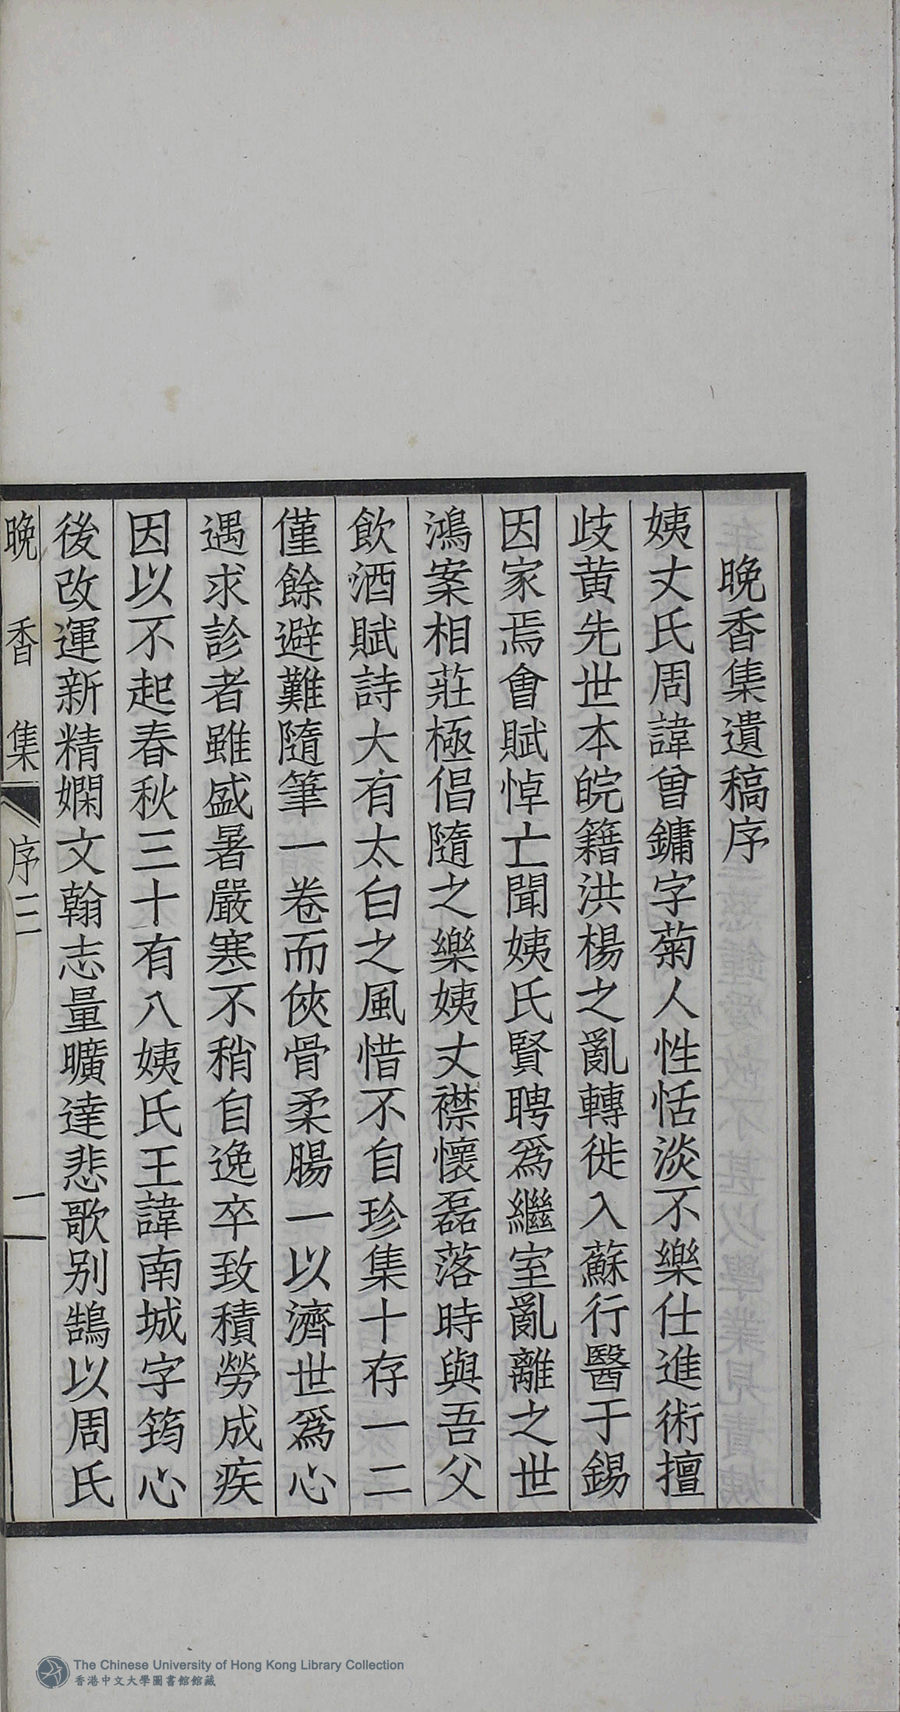 晚香集遺稿序
姨丈氏周諱曾鏞字菊人性恬淡不樂仕進術擅
歧黃先世本皖籍洪楊之亂轉徙入蘇行醫于錫
因家焉會賦悼亡聞姨氏賢聘爲繼室亂離之世
鴻案相莊極倡隨之樂姨丈襟懷磊落時與吾父
飲酒賦詩大有太白之風惜不自珍集十存一二
僅餘避難隨筆一卷而俠骨柔腸一以濟世爲心
遇求診者雖盛暑嚴寒不稍自逸卒致積勞成疾
因以不起春秋三十有八姨氏王諱南城字筠心
後改運新精嫻文翰志量曠達悲歌別鵠以周氏
晚香集 序三 一
The Chinese University of Hong Kong Library Collection
香港中文大學圖書館館藏